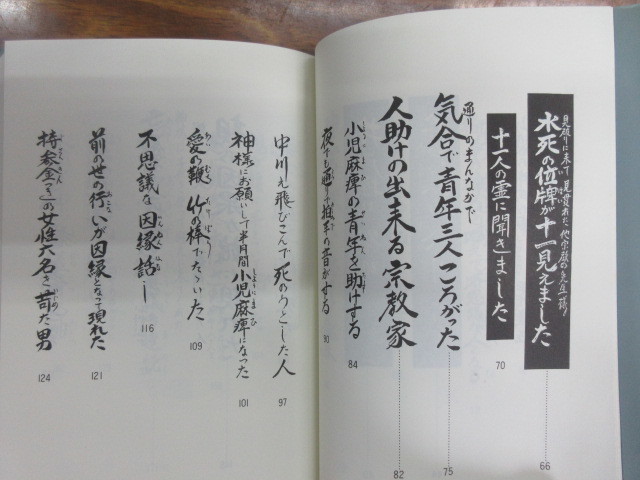 見破りに来て
他宗教の先生様
水死の位牌が十一見えました
66
十一人の霊に聞きました
70
通りのまんなかで
気合で青年三人ころがった
75
人助けの出来る宗教家
82
小児麻痺の青年を助けする
84
夜でも の音がする
90
中川え飛びこんで死のうとした人
97
神様にお願いして半月間小児麻痺になった
101
愛の鞭 竹の棒でたゝいた
109
不思議な因縁話し
116
前の世の行いが因縁となって現れた
121
持参金つきの女性六名を苛めた男
124